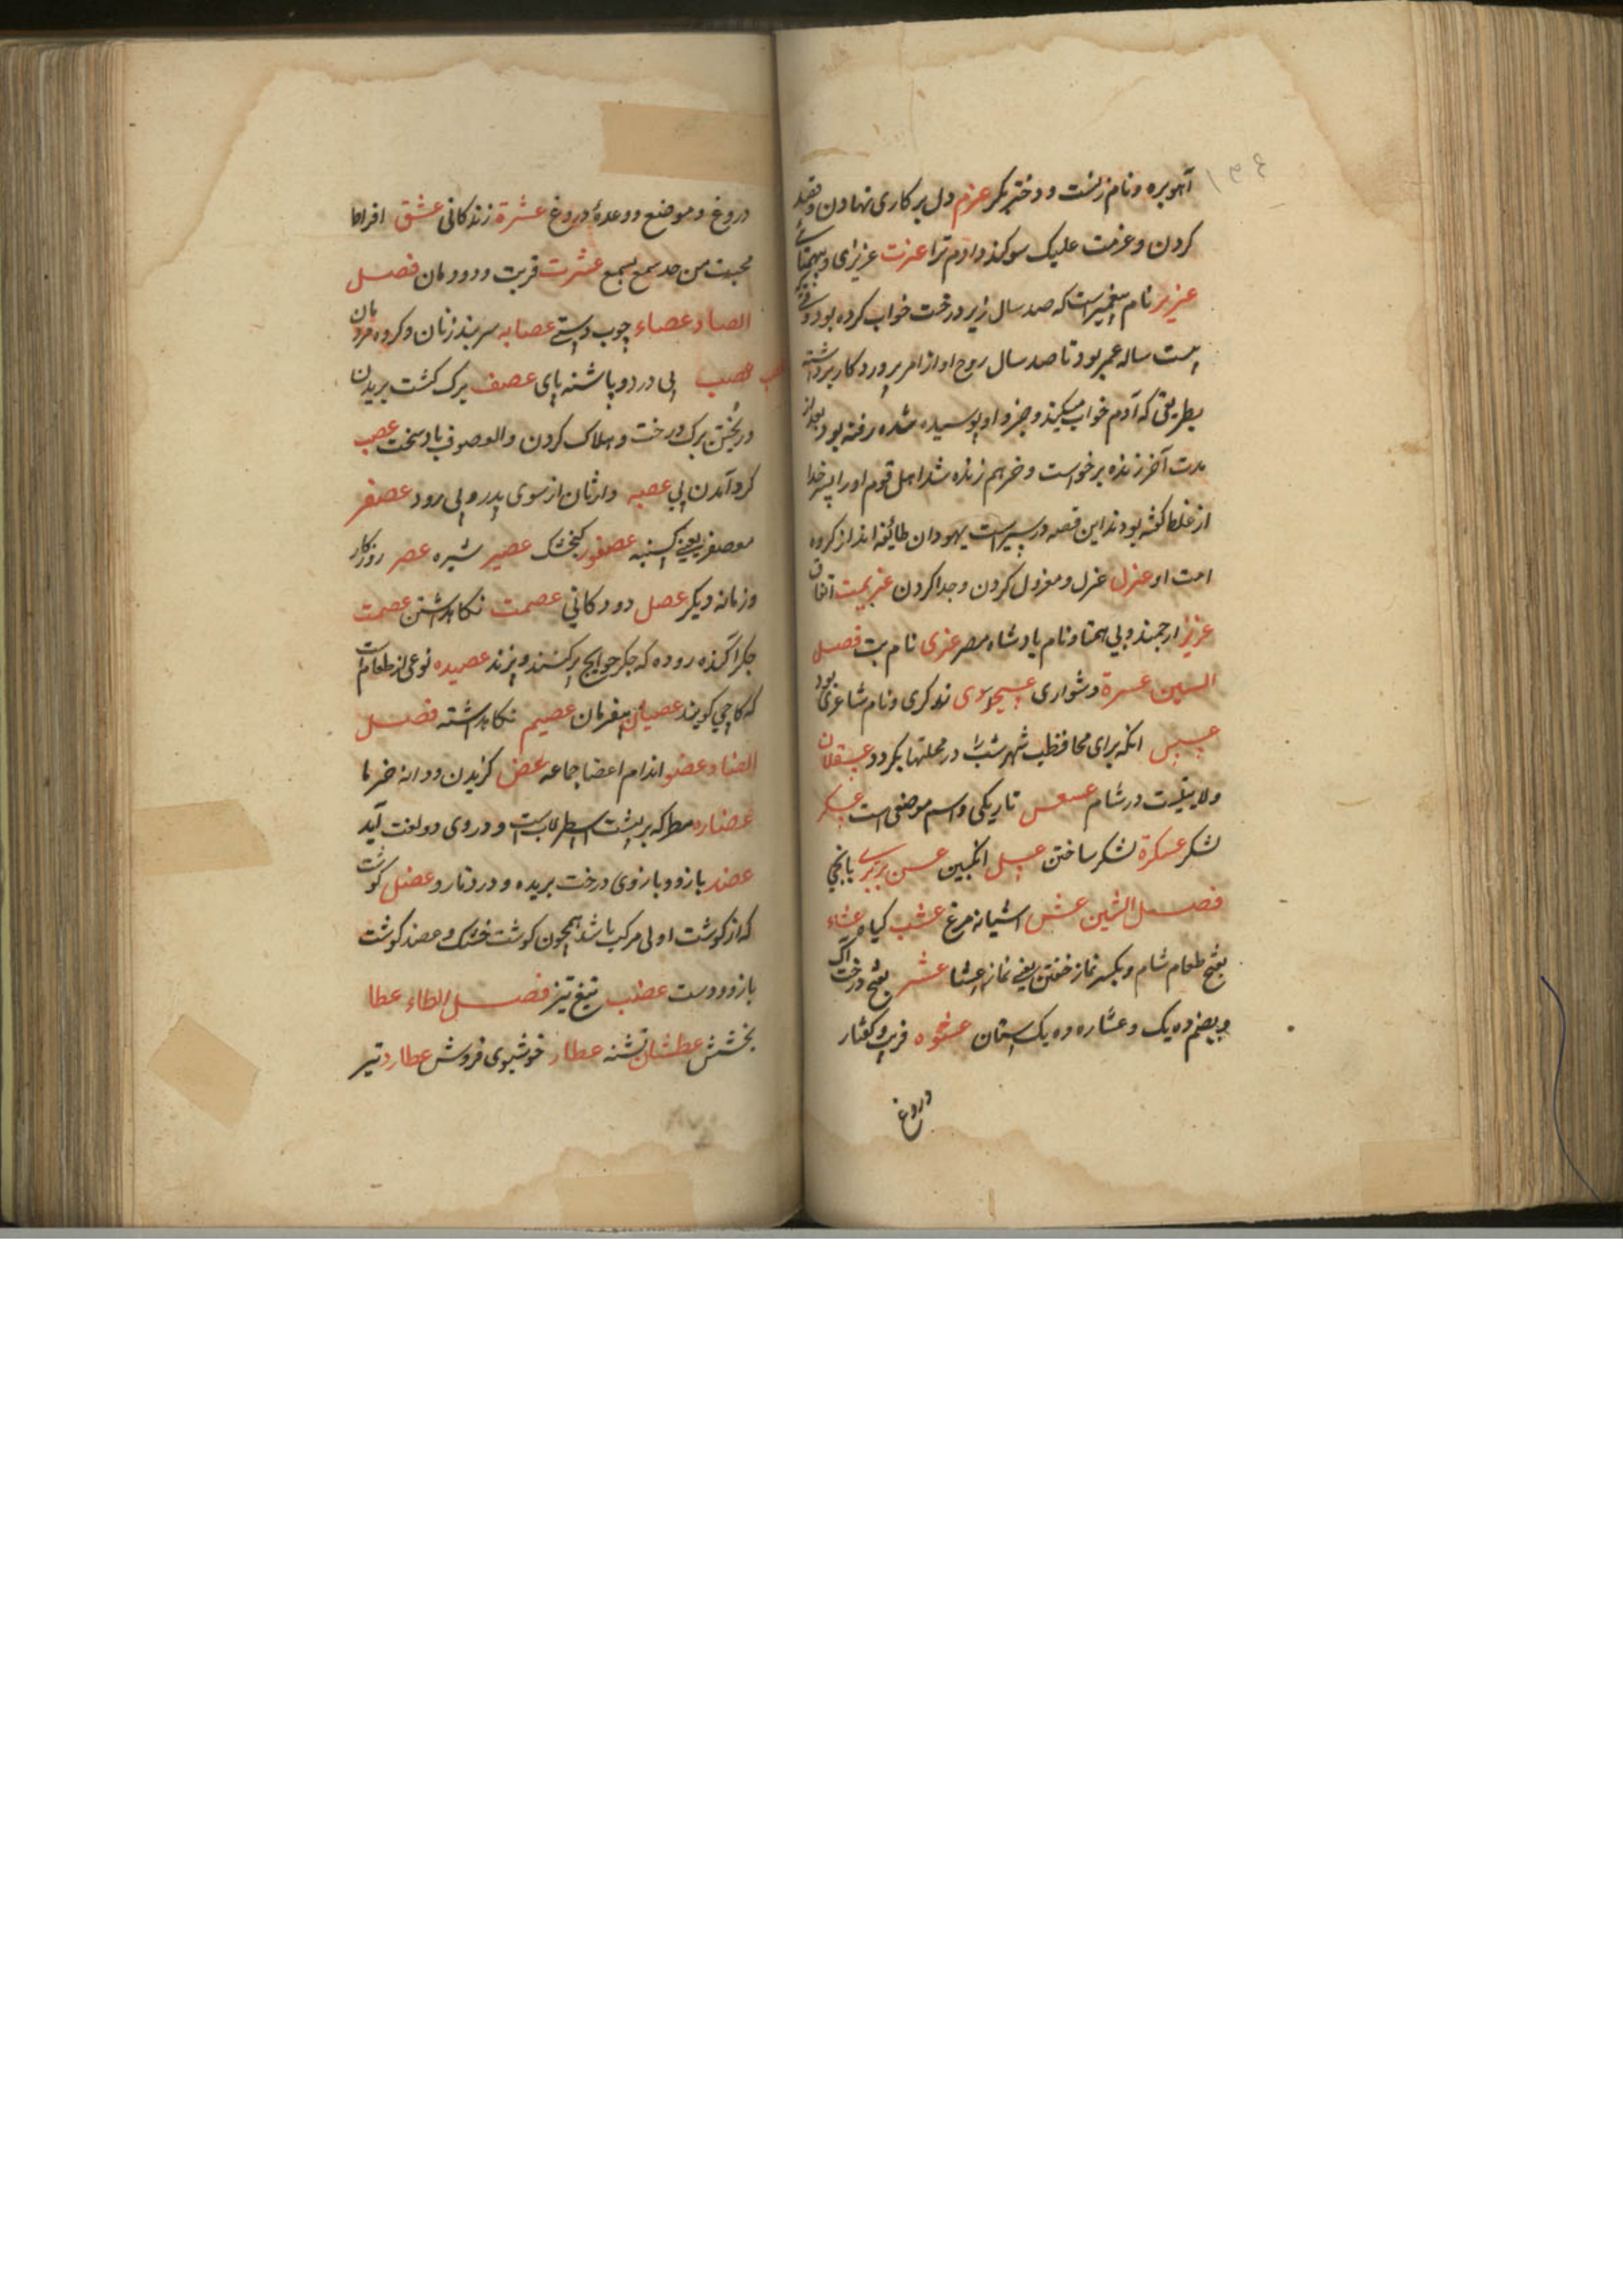 آهو بره و نام زنیست و دختر بکر عزم دل بر کاری نهادن و قصد
کردن و عزمت علیک سوکند دادم ترا عزت عزیزی و بیهمتائی
عزیر نام پیغمبریست که صد سال زیر درخت خواب کرده بود وقتی
بیست ساله عمر بود تا صد سال روح او از امر پروردکار برداشته
بطریقی که آدم خواب میکند و خر او پوسیده شده رفته بود بعد از
مدت آخر زنده برخواست و خر هم زنده شد اهل قوم او را پسر خدا
از غلط کفته بودند این قصه در سیرست یهودان طائفه اند از کروه
امت او عزل عزل و معزول کردن و جدا کردن عزیمت اتفاق
عزیز ارجمند و بی همتا و نام پادشاه مصر عزی نام بت فصل
السین عسرة دشواری عیسوی ند کری و نام شاعری بود
عسس انکه برای محافظت شهر شب در محلتها بکردد عسقلان
ولایتیست در شام عسعس تاریکی و اسم موضعی است عسکر
لشکر عسکرة لشکر ساختن عسل انکبین عسن
فصل الشین عش اشیانه مرغ عشب کیاه عشاء
بفتح طعام شام و بکسر نماز خفتن یعنی نماز عشا عشر بفتح درخت آک
و بضم ده یک و عشاره ده یک ستان عشوه فریب و کفتار
دروغ
دروغ و موضع و وعدهٔ دروغ عشرة زندکانی عشق افراط
محبت من حد سمع یسمع عشرت قربت و دودمان فصل
الصاد عصاء چوب دستی عصابه سربند زنان و کروه مردمان
عصب پی درد و پاشنه پای عصف برک کشت بریدن
و ریختن برک درخت و هلاک کردن و العصوف باد سخت عصب
کرد آمدن پی عصبه وارثان از سوی پدر و پی رود عصفر
معصفر یعنی کسنبه عصفور کنجشک عصیر شیره عصر روزکار
و زمانه دیکر عصل دو دکانی عصمت نکاهداشتن عصمت
جکر آکنده روده که جکر حوایج پر کنند و پزند عصیده نوعی از طعام است
که کاچی کویند عصیان بیفرمان عصیم نکاهداشته فصل
الضاد عضو اندام اعضا جماعه عض کزیدن و دانه خرما
عضاره مطر که بر پشت اسطرلابست و در وی دو لغت آید
عضد بازو و بازوی درخت بریده و در دنار و عضل کوشت
که از کوشت اولی مرکب باشد همچون کوشت و عضد کوشت
بازو و دست عضب تیغ تیز فصل الطاء عطا
بخشش عطشان تشنه عطار خوشبوی فروش عطارد تیر